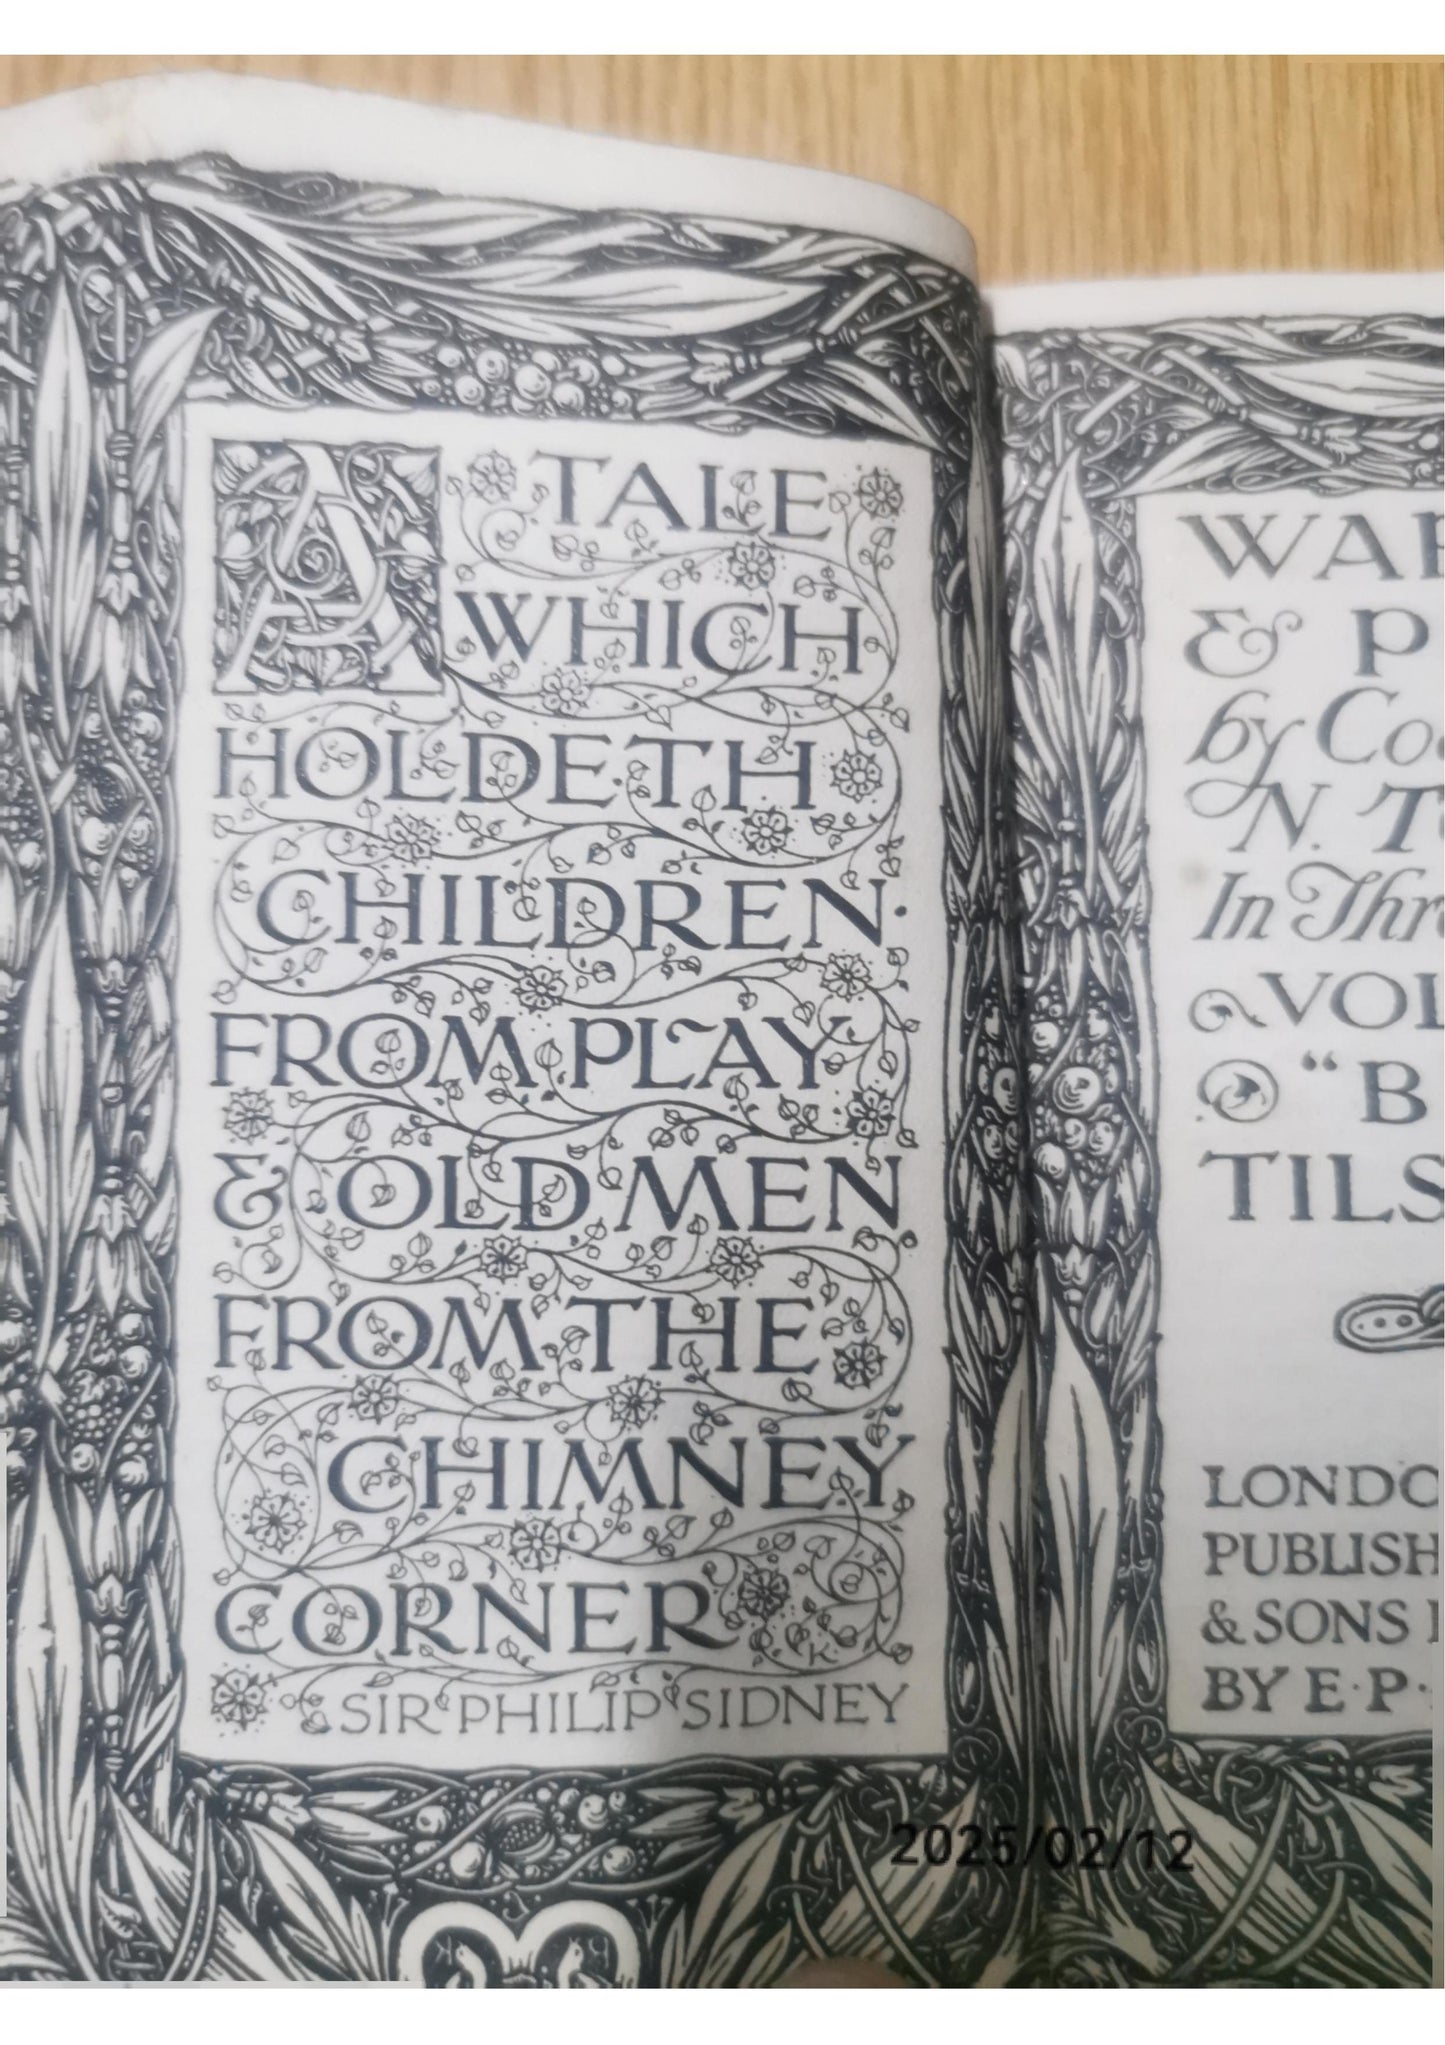 A TALE
WHICH
HOLDETH
CHILDREN
FROM PLAY
& OLD MEN
FROM THE
CHIMNEY
CORNER
SIR PHILIP SIDNEY
&
by
N.
In
VOL
"B
TILS
LONDO
PUBLISH
& SONS
BY E·P·
2025/02/12